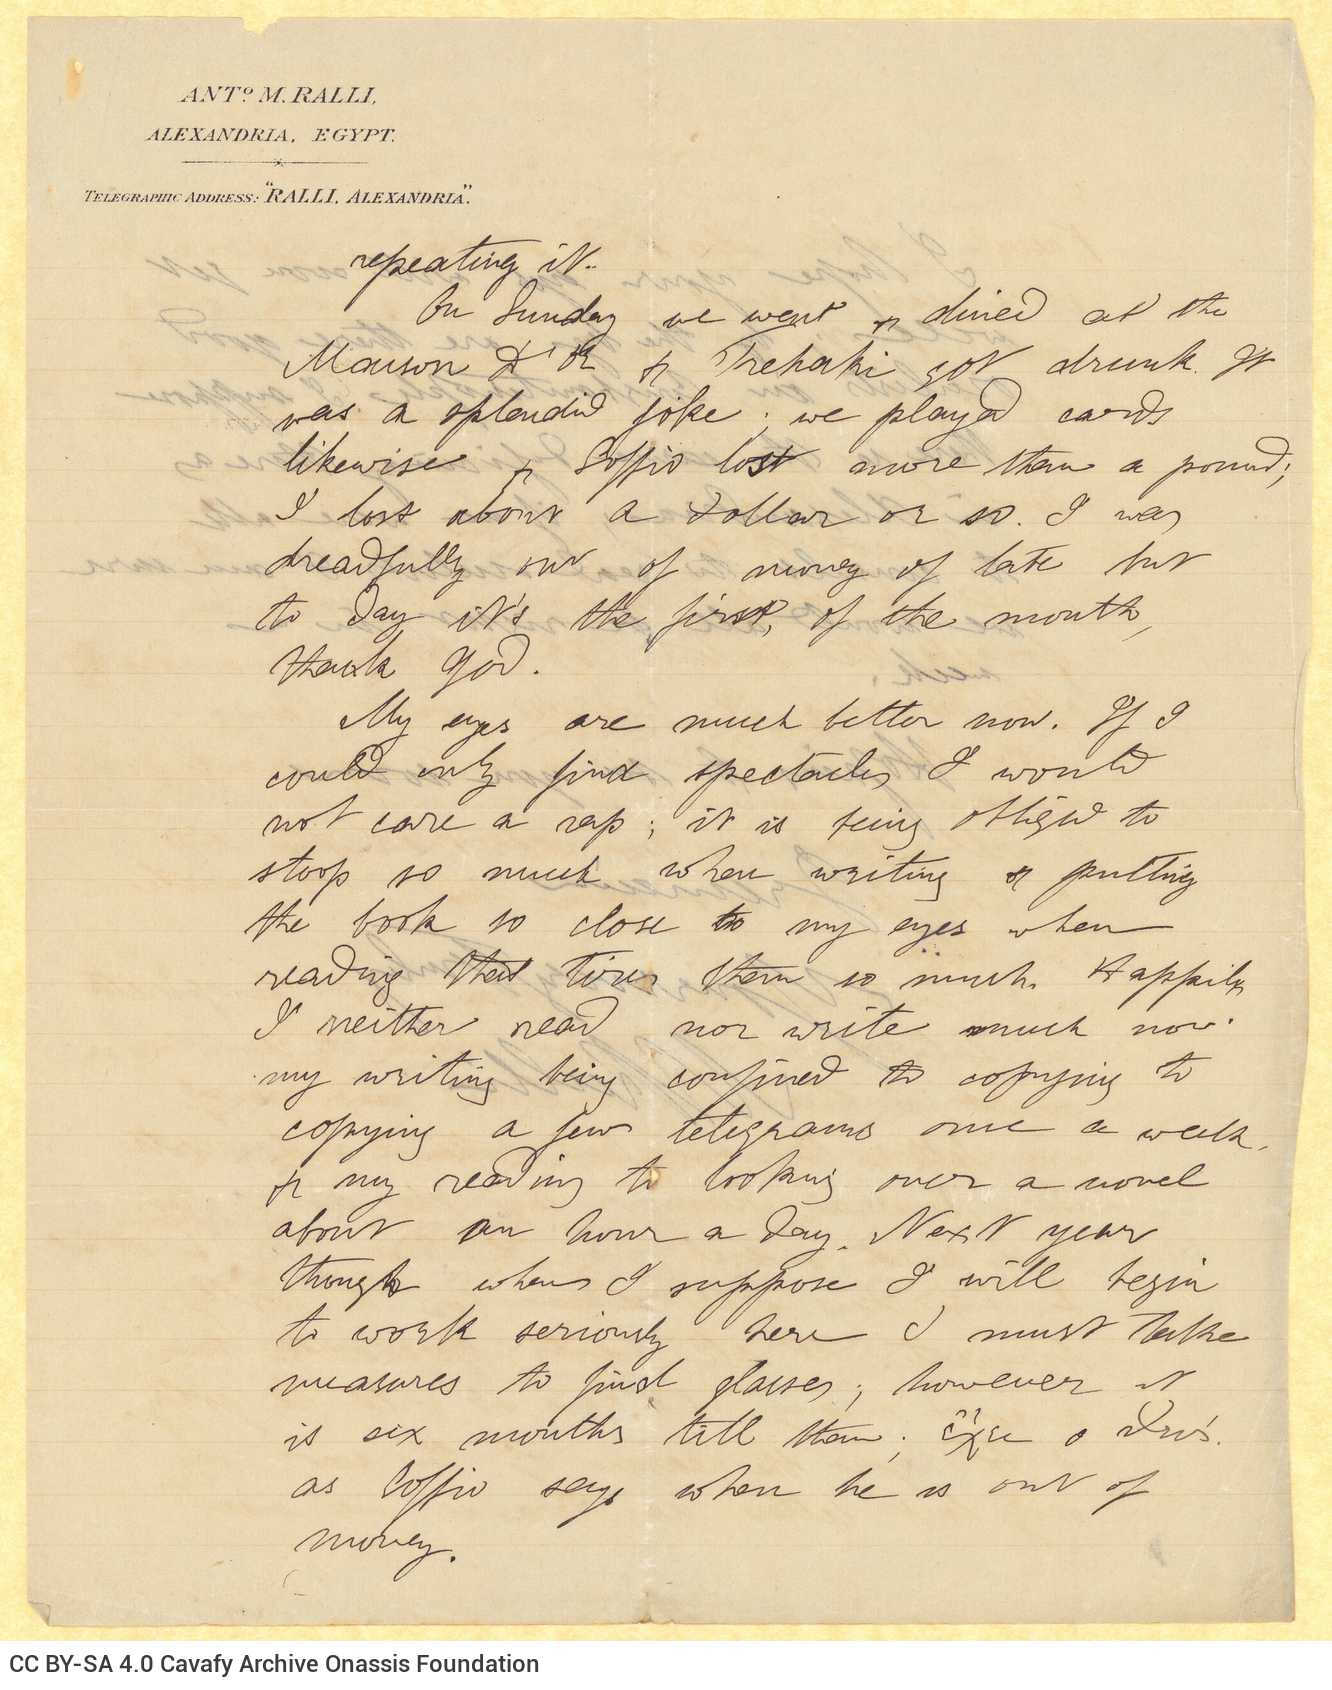 ANTº M. RALLI,
ALEXANDRIA, EGYPT.
TELEGRAPHIC ADDRESS: "RALLI, ALEXANDRIA".
repeating it.
On Sunday we went & dined at the
Maison D'Or & Trekaki got drunk. It
was a splendid joke; we played cards
likewise & Soffio lost more than a pound;
I lost about a dollar or so. I was
dreadfully out of money of late but
to day it's the first, of the month,
thank God.
My eyes are much better now. If I
could only find spectacles I would
not care a rap; it is being obliged to
stoop so much when writing & putting
the book so close to my eyes when
reading that tires them so much. Happily
I neither read nor write much now.
my writing being confined to copying to
copying a few telegrams once a week
& my reading to looking over a novel
about an hour a day. Next year
though when I suppose I will begin
to work seriously here I must take
measures to find glasses; however it
is six months till then; ἔχει ὁ
as Soffio says when he is out of
money.
CC BY-SA 4.0 Cavafy Archive Onassis Foundation